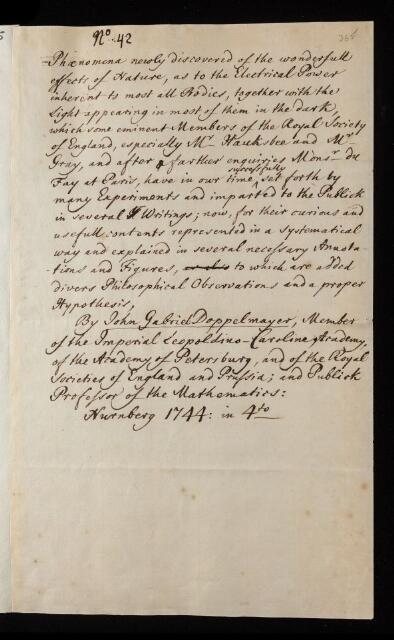 No. 42
Phænomena newly discovered of the wonderfull
effects of Nature, as to the Electrical Power
inherent to most all Bodies, together with the
Light appearing in most of them in the dark,
which some eminent Members of the Royal Society
of England, especially Mr. Hauksbee and Mr.
Gray, and after farther enquiries Mons. du
successfully
Fay at Paris, have in our time, set forth by
many Experiments and imparted to the Publick
in several Writings; now, for their curious and
usefull contents represented in a Systematical
way and explained in several necessary Anota-
tions and Figures, or also to which are added
divers Philosophical Observations and a proper
Hypothesis,
By John Gabriel Doppelmayer, Member
of the Imperial Leopoldino-Caroline Academy,
of the Academy of Petersburg, and of the Royal
Societies of England and Prussia; and Publick
Professor of the Mathematics:
Nurnberg 1744: in 4to